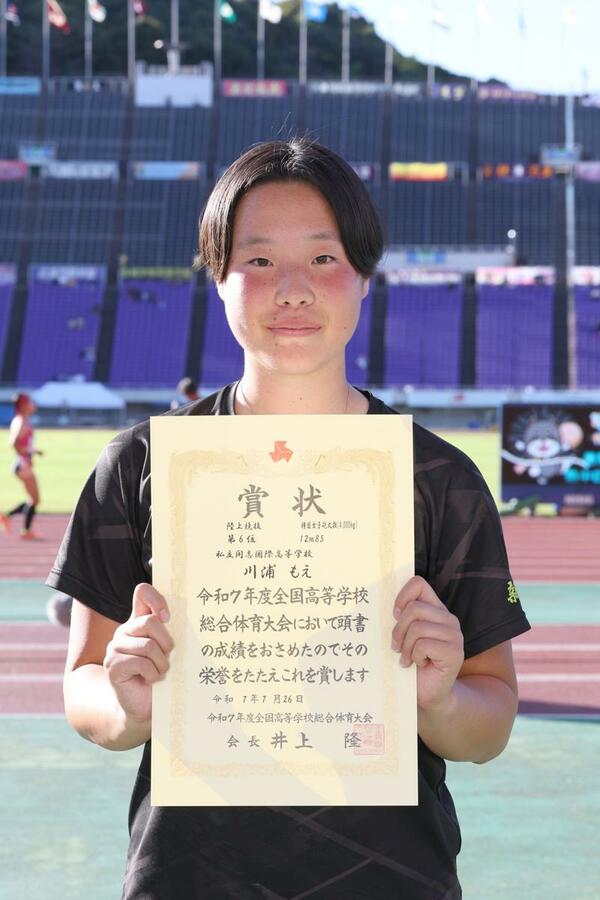 賞状
陸上競技 種目女子砲丸投(4.000kg)
第6位 12m85
私立同志国際高等学校
川浦 もえ
令和7年度全国高等学校
総合体育大会において頭書
の成績をおさめたのでその
栄誉をたたえこれを賞します
令和 7年7月26日
令和7年度全国高等学校総合体育大会
会長 井上 隆